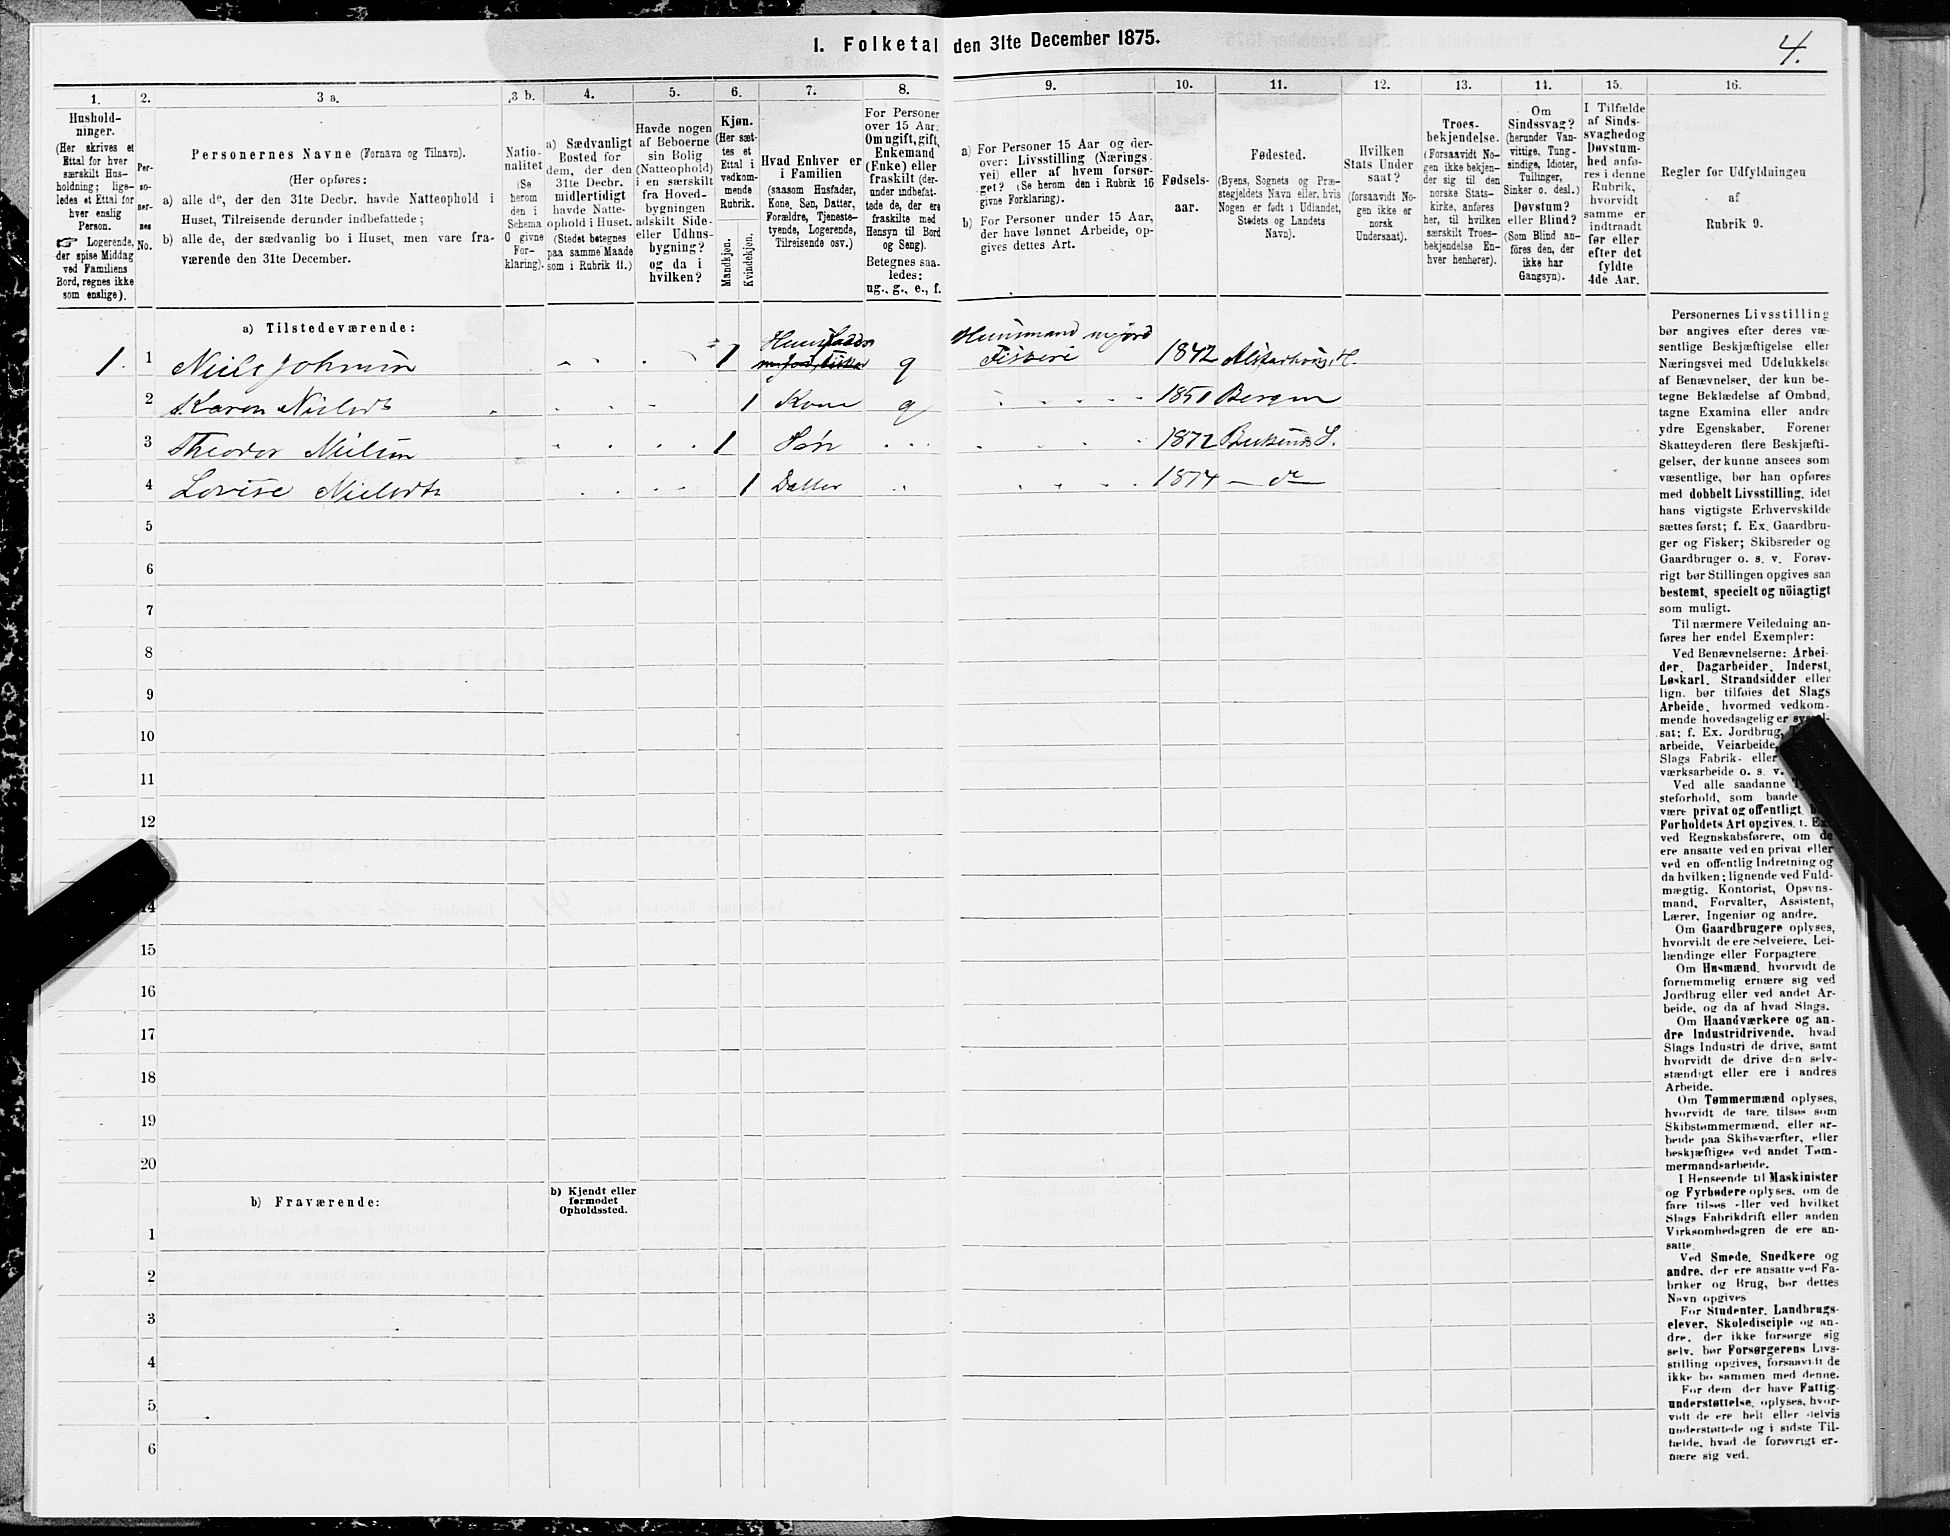 I. Folketal den 31te December 1875.
4.
1.
Hushold-
ninger.
(Her skrives et
Ettal for hver
særskilt Hus-
holdning; lige-
ledes et Ettal for
hver enslig
Person.
☞ Logerende,
der spise Middag
ved Familiens
Bord, regnes ikke
som enslige).
2.
Per-
so-
ner-
nes
No.
3 a.
Personernes Navne (Fornavn og Tilnavn).
(Her opføres:
a) alle de, der den 31te Decbr. havde Natteophold i
Huset, Tilreisende derunder indbefattede;
b) alle de, der sædvanlig bo i Huset, men vare fra-
værende den 31te December.
3 b.
Natio-
nalitet
(Se
herom
den i
Schema
O givne
For-
klaring).
4.
a) Sædvanligt
Bosted for
dem, der den
31te Decbr.
midlertidigt
havde Natte-
ophold i Huset.
(Stedet betegnes
paa samme Maade
som i Rubrik 11.)
5.
Havde nogen
af Beboerne
sin Bolig
(Natteophold)
i en særskilt
fra Hoved-
bygningen
adskilt Side-
eller Udhus-
bygning?
og da i
hvilken?
6.
Kjøn.
(Her sæt-
tes et
Ettal i
vedkom-
mende
Rubrik.
Mandkjøn.
Kvindekjøn.
7.
Hvad Enhver er
i Familien
(saasom Husfader,
Kone, Søn, Datter,
Forældre, Tjeneste-
tyende, Logerende,
Tilreisende osv.)
8.
For Personer
over 15 Aar:
Om ugift, gift,
Enkemand
(Enke) eller
fraskilt (der-
under indbefat-
tede de, der ere
fraskilte med
Hensyn til Bord
og Seng).
Betegnes saa-
ledes:
ug., g., e., f.
9.
a) For Personer 15 Aar og der-
over: Livsstilling (Nærings-
vei) eller af hvem forsør-
get? (Se herom den i Rubrik 16
givne Forklaring).
b) For Personer under 15 Aar,
der have lønnet Arbeide, op-
gives dettes Art.
10.
Fødsels-
aar.
11.
Fødested.
(Byens, Sognets og Præ-
stegjeldets Navn eller, hvis
Nogen er født i Udlandet,
Stedets og Landets
Navn).
12.
Hvilken
Stats Under
saat?
(forsaavidt No-
gen ikke er
norsk
Undersaat).
13.
Troes-
bekjendelse.
(Forsaavidt No-
gen ikke bekjen-
der sig til den
norske Stats-
kirke, anføres
her, til hvilken
særskilt Troes-
bekjendelse En-
hver henhører).
14.
Om
Sindssvag?
(herunder Van-
vittige, Tung-
sindige, Idioter,
Tullinger,
Sinker o. desl.)
Døvstum?
eller Blind?
(Som Blind an-
føres den, der
ikke har
Gangsyn).
15.
I Tilfælde
af Sinds-
svaghed og
Døvstum-
hed anfø-
res i denne
Rubrik,
hvorvidt
samme er
indtraadt
før eller
efter det
fyldte
4de Aar.
16.
Regler for Udfyldningen
af
Rubrik 9.
a) Tilstedeværende:
1 1 Niels Johnsen 1 Huusfader g Huusmand m jord Fiskeri 1842 Alstadhoug H.
2 Karen Nielsdt 1 Kone g 1851 Bergen
3 Theodor Nielsen 1 Søn 1872
4 Lovise Nielsdt 1 Datter 1874 — do —
5
6
7
8
9
10
11
12
14
15
16
17
18
19
20
b) Fraværende:
b) Kjendt eller
formodet
Opholdssted.
1
2
3
4
5
6
Personernes Livsstilling
bør angives efter deres væ-
sentlige Beskjæftigelse eller
Næringsvei med Udelukkelse
af Benævnelser, der kun be-
tegne Beklædelse af Ombud,
tagne Examina eller andre
ydre Egenskaber. Forener
Skatteyderen flere Beskjæfti-
gelser, der kunne ansees som
væsentlige, bør han opføres
med dobbelt Livsstilling, idet
hans vigtigste Erhvervskilde
sættes først; f. Ex. Gaardbru-
ger og Fisker; Skibsreder og
Gaardbruger o. s. v. Forøv-
rigt bør Stillingen opgives saa
bestemt, specielt og nöiagtigt
som muligt.
Til nærmere Veiledning an-
føres her endel Exempler:
Ved Benævnelserne: Arbei-
der, Dagarbeider, Inderst,
Løskarl, Strandsidder eller
lign. bør tilføies det Slags
Arbeide, hvormed vedkom-
mende hovedsagelig er
sat; f. Ex. Jordbrug,
arbeide, Veiarbeide,
Slags Fabrik- eller
værksarbeide o. s. v.
Ved alle saadanne
steforhold, som baade
være privat og offentligt,
Forholdets Art opgives, f. Ex.
ved Regnskabsførere, om de
ere ansatte ved en privat eller
ved en offentlig Indretning og
da hvilken; lignende ved Fuld-
mægtig, Kontorist, Opsyns-
mand, Forvalter, Assistent,
Lærer, Ingeniør og andre.
Om Gaardbrugere oplyses,
hvorvidt de ere Selveiere, Lei-
lændinge eller Forpagtere.
Om Husmænd, hvorvidt de
fornemmelig ernære sig ved
Jordbrug eller ved andet Ar-
beide, og da af hvad Slags.
Om Haandværkere og an-
dre Industridrivende, hvad
Slags Industri de drive, samt
hvorvidt de drive den selv-
stændigt eller ere i andres
Arbeide.
Om Tømmermænd oplyses,
hvorvidt de fare tilsøs som
Skibstømmermænd, eller ar-
beide paa Skibsværfter, eller
beskjæftiges ved andet Tøm-
mermandsarbeide.
I Henseende til Maskinister
og Fyrbødere oplyses, om de
fare tilsøs eller ved hvilket
Slags Fabrikdrift eller anden
Virksomhedsgren de ere an-
satte.
Ved Smede, Snedkere og
andre, der ere ansatte ved Fa-
briker og Brug, bør dettes
Navn opgives
For Studenter, Landbrugs-
elever, Skoledisciple og an-
dre, der ikke forsørge sig
selv, bør Forsørgerens Livs-
stilling opgives, forsaavidt de
ikke bo sammen med denne.
For dem der have Fattig-
understøttelse, oplyses, hvor-
vidt de ere helt eller delvis
understøttede og i sidste Til-
fælde, hvad de forøvrigt er-
nære sig ved.